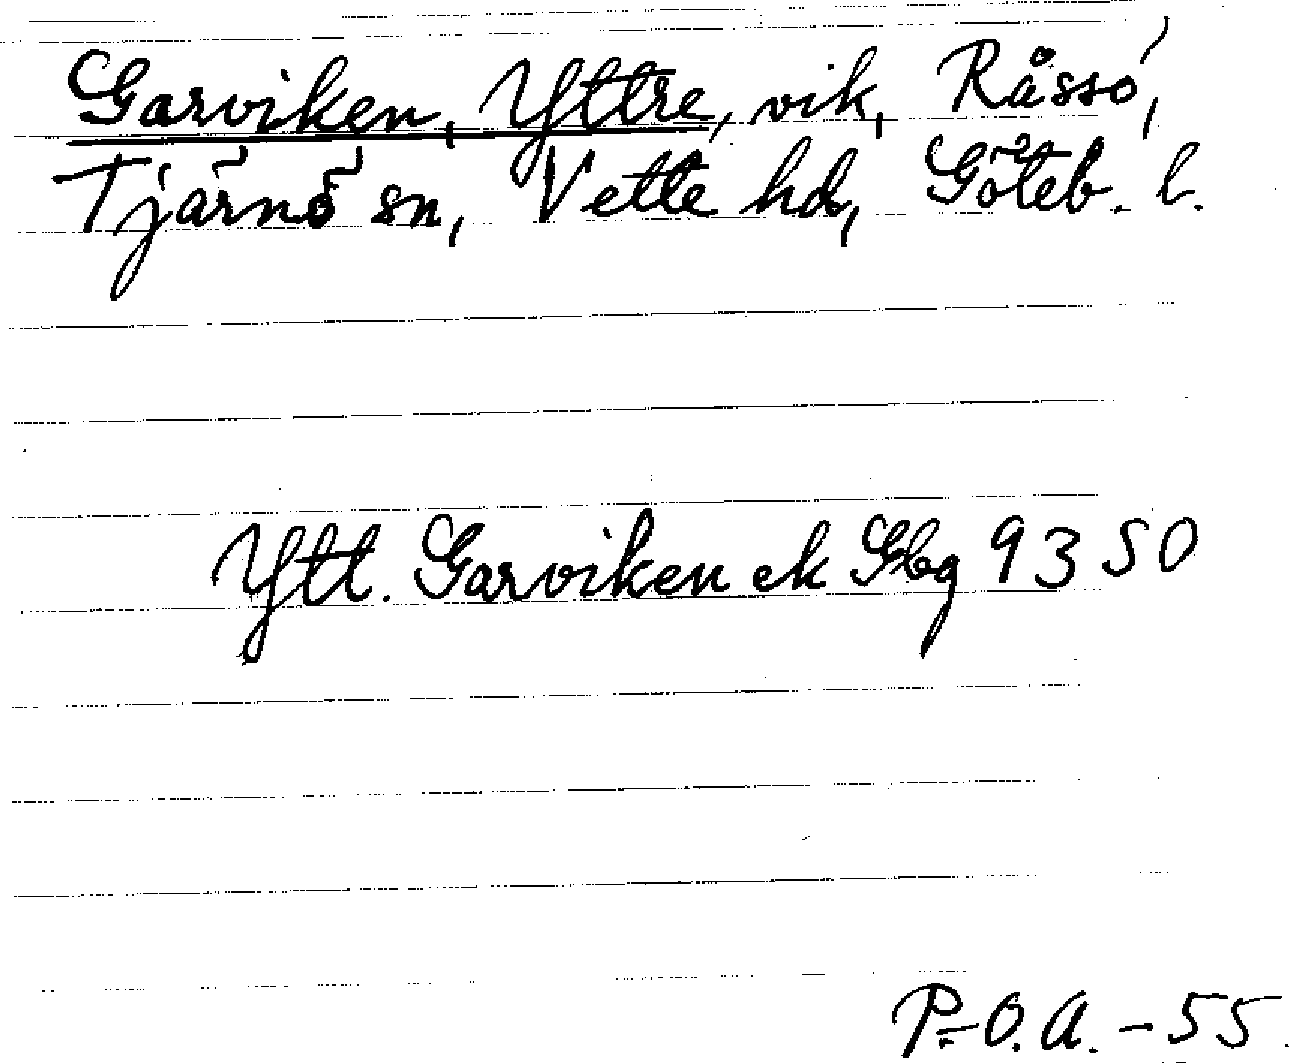 Garviken, Yttre, vik, Råssö,
Tjärnö sn, Vette hd, Göteb. l.
Ytt. Garviken ek Gbg 9350
P.-O.A. - 55.